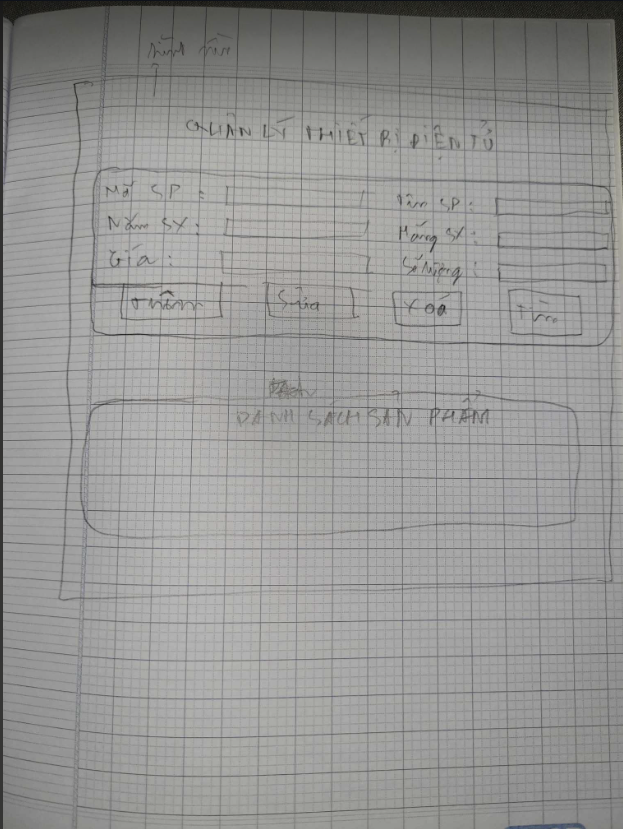 QUẢN LÝ THIẾT BỊ ĐIỆN TỬ
Mã SP : Tên SP :
Năm SX : Hãng SX :
Giá : Số lượng :
Thêm Sửa Xoá Tìm
DANH SÁCH SẢN PHẨM